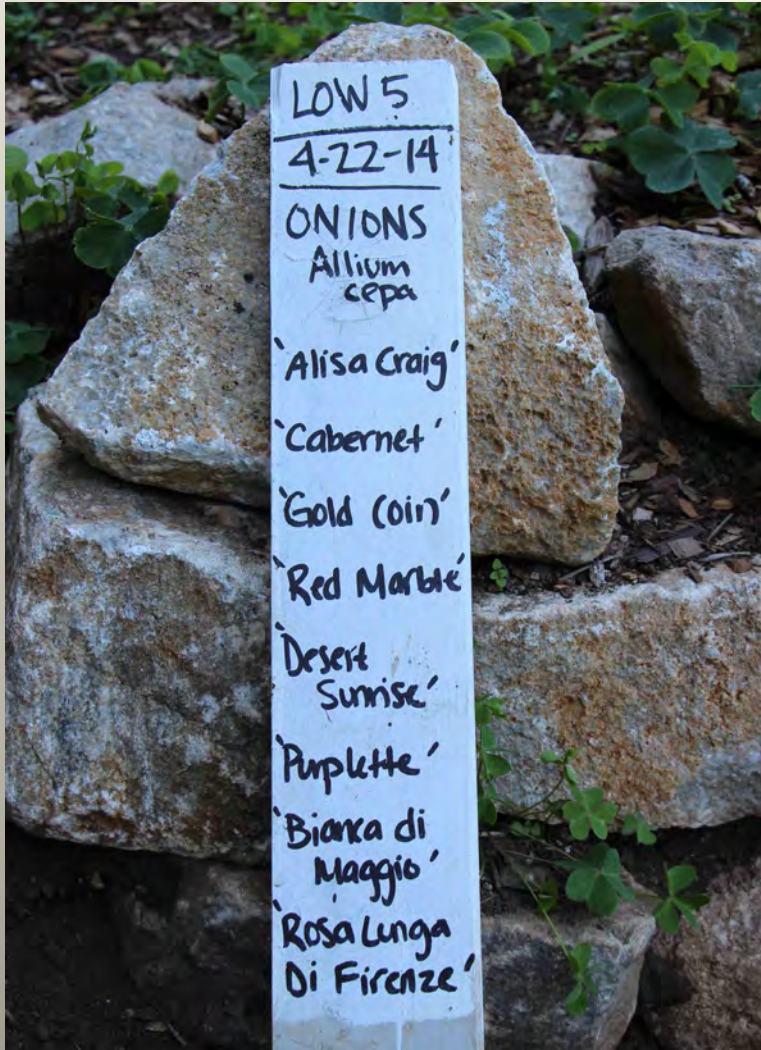 LOW 5
4-22-14
ONIONS
Allium
cepa
'Alisa Craig'
'Cabernet'
'Gold Coin'
'Red Marble'
'Desert
Sunrise'
'Purplette'
'Bianca di
Maggio'
'Rosa Lunga
Di Firenze'